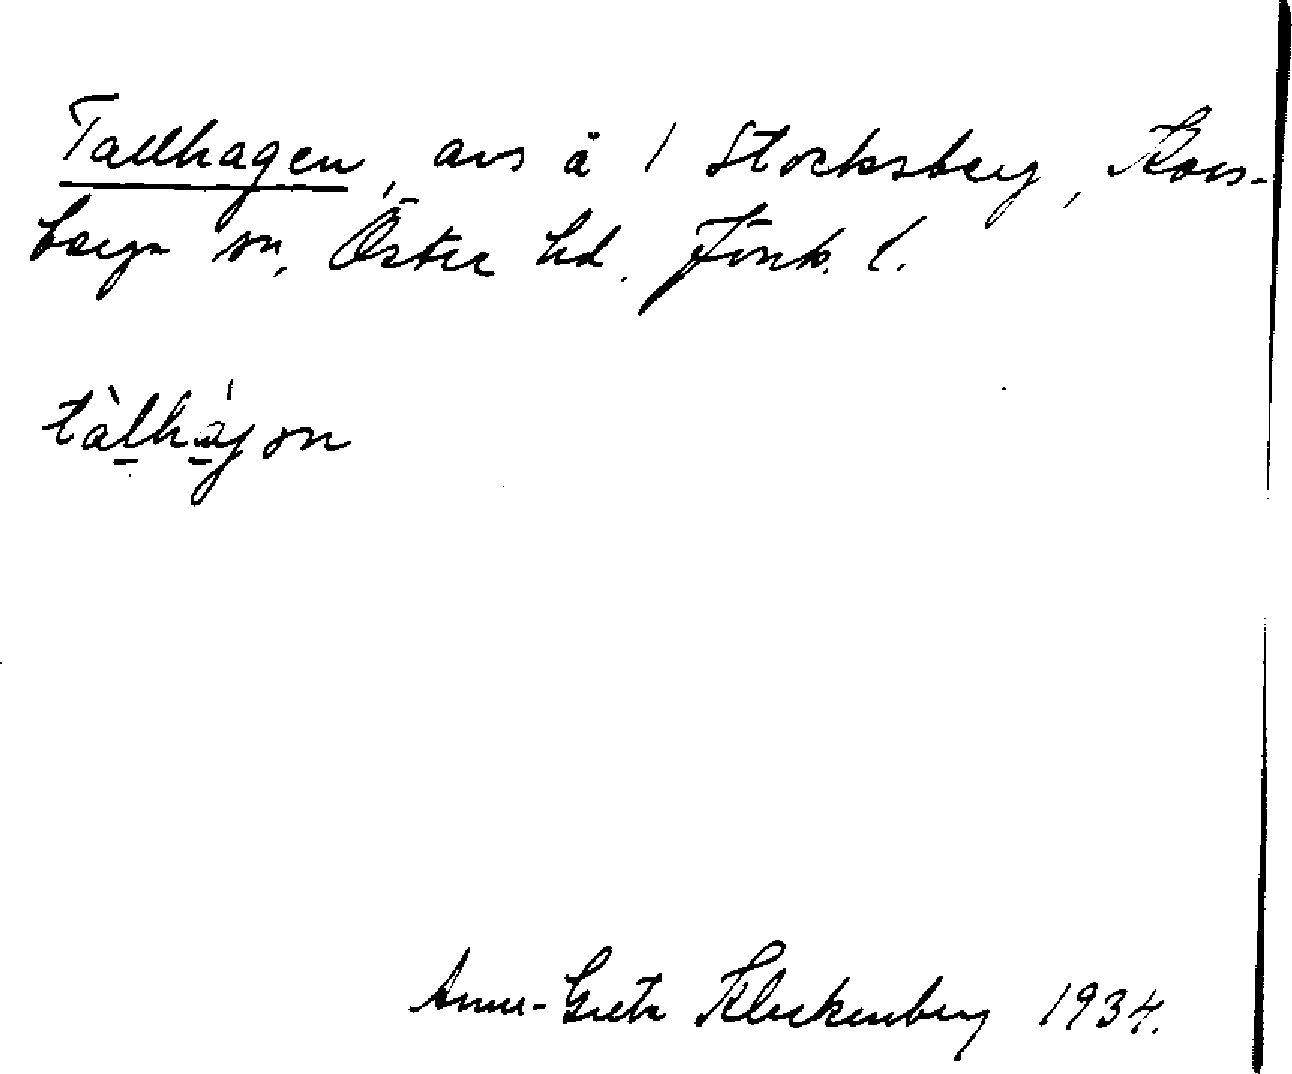 Tallhagen, avs å 1 Stocksberg, Kors-
berga sn, Östra hd. Jönk. l.
tàlhájɔn
Anna-Greta Klockenberg 1934.